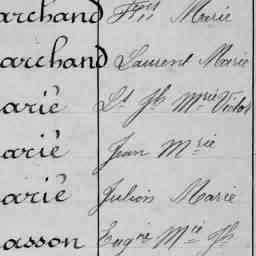 archand Fçois Marie
archand Laurent Marie
arié Ls Jh Mrie Victor
arié Jean Mrie
arié Julien Marie
asson Eugne Mie Jh